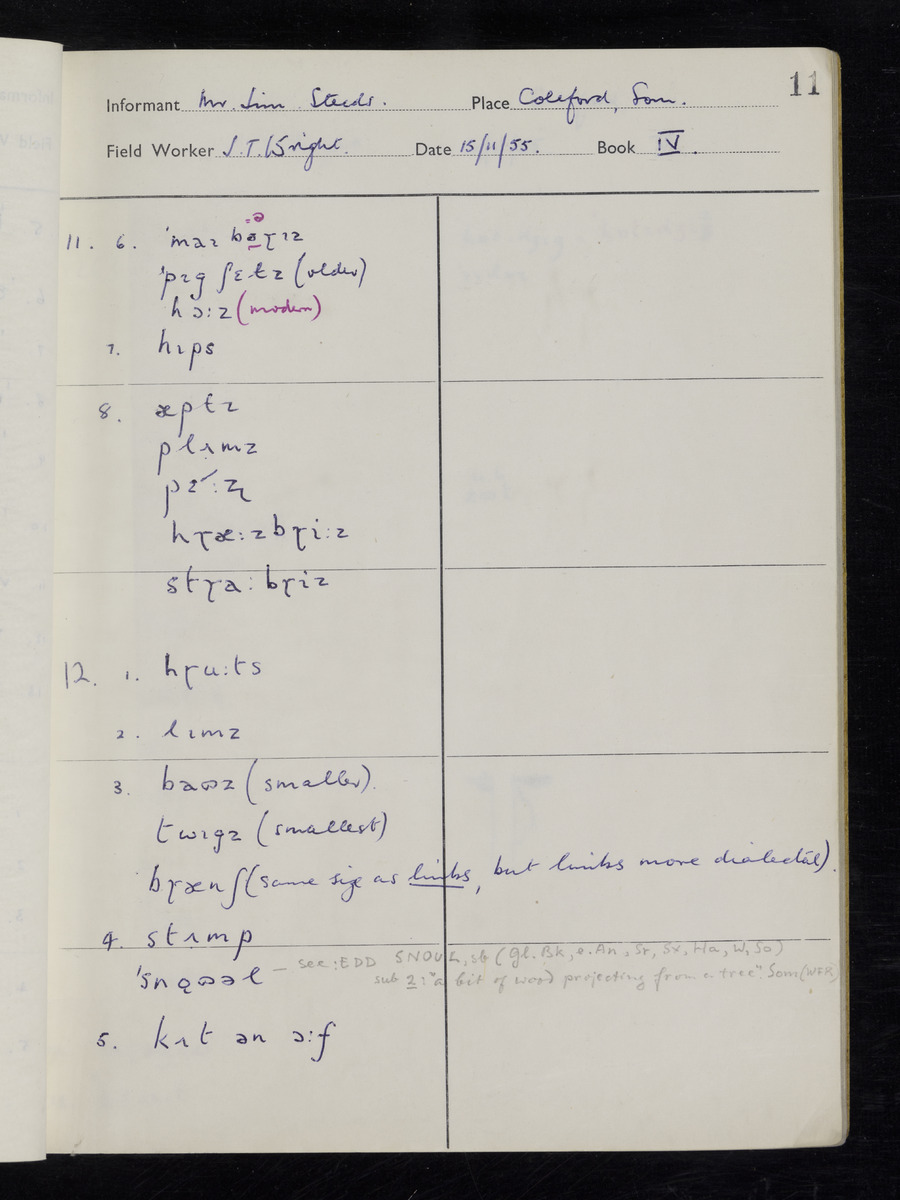 11
Informant Mr. Jim Steeds. Place Coleford, Som.
Field Worker J.T. Wright. Date 15/11/55. Book IV.
:ə
11. 6. ˈmaɪ bəɽɪz
ˈpɪg ʃɛtz (older)
hɔ:z (modern)
7. hɪps
8. æpɫz
plʌmz
hɽæ:zbɽi:z
stɽa:bɽiz
12. 1. hɽu:ts
2. lɪmz
3. baʊz (smaller).
twɪgz (smallest)
bɽænʃ (same size as limbs, but limbs more dialectal).
4. stʌmp
— see: EDD SNOUL, sb (Gl. Bk, e.An, Sr, Sx, Ha, W, So)
sub 2: "a bit of wood projecting from a tree". Som (WFR)
5. kʌt ən ɔ:f